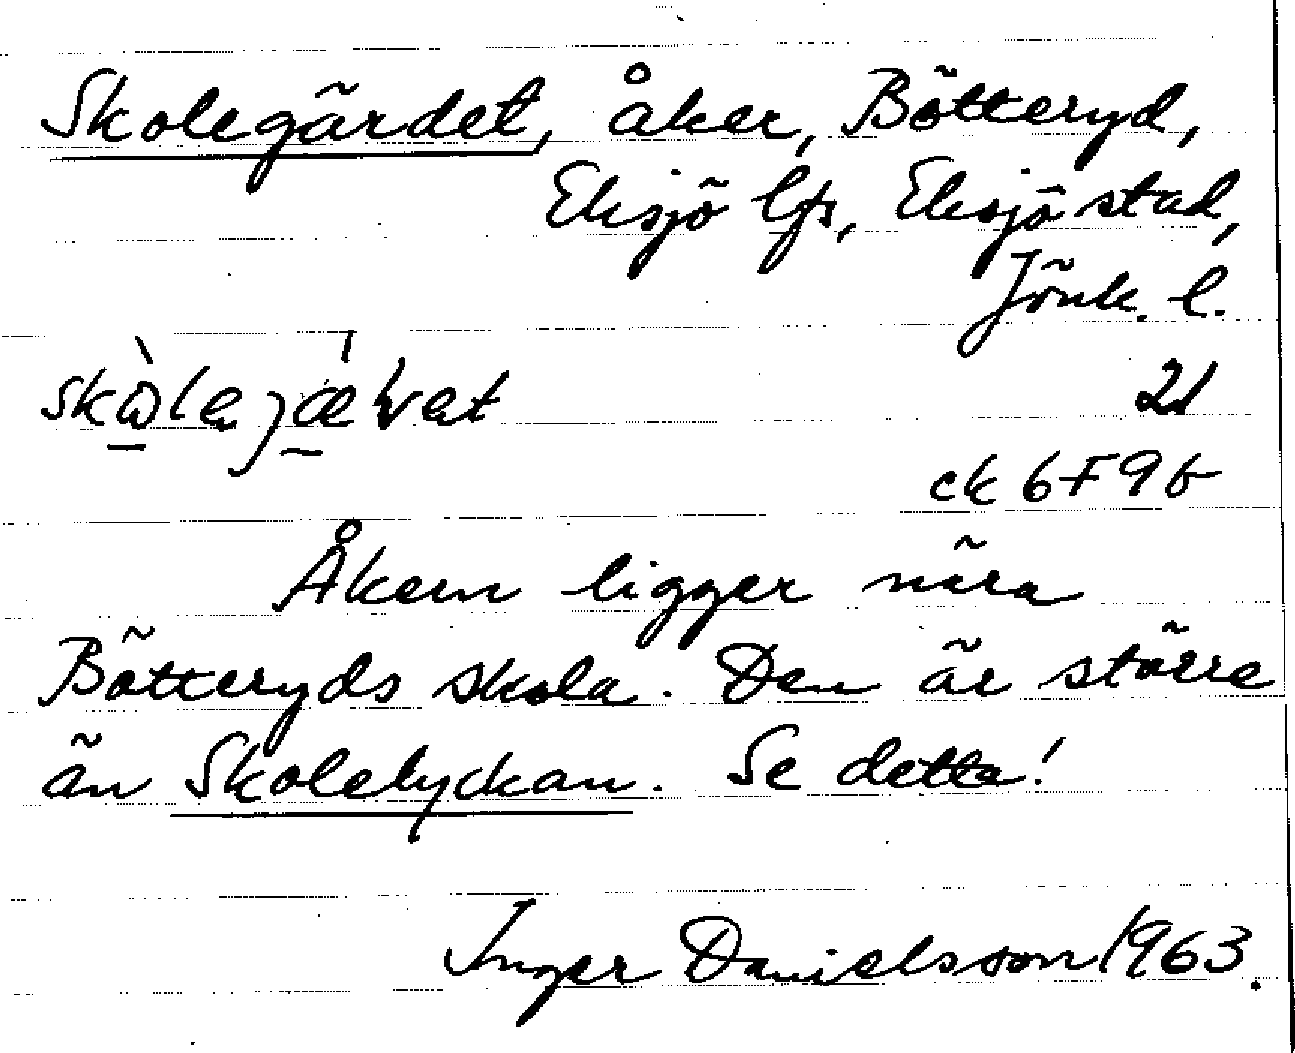 Skolegärdet, åker, Bötteryd,
Eksjö lfs, Eksjö stad,
Jönk. l.
21
ck 6F9b
Åkern ligger nära
Bötteryds skola. Den är större
än Skolelyckan. Se detta!
Inger Danielsson 1963.